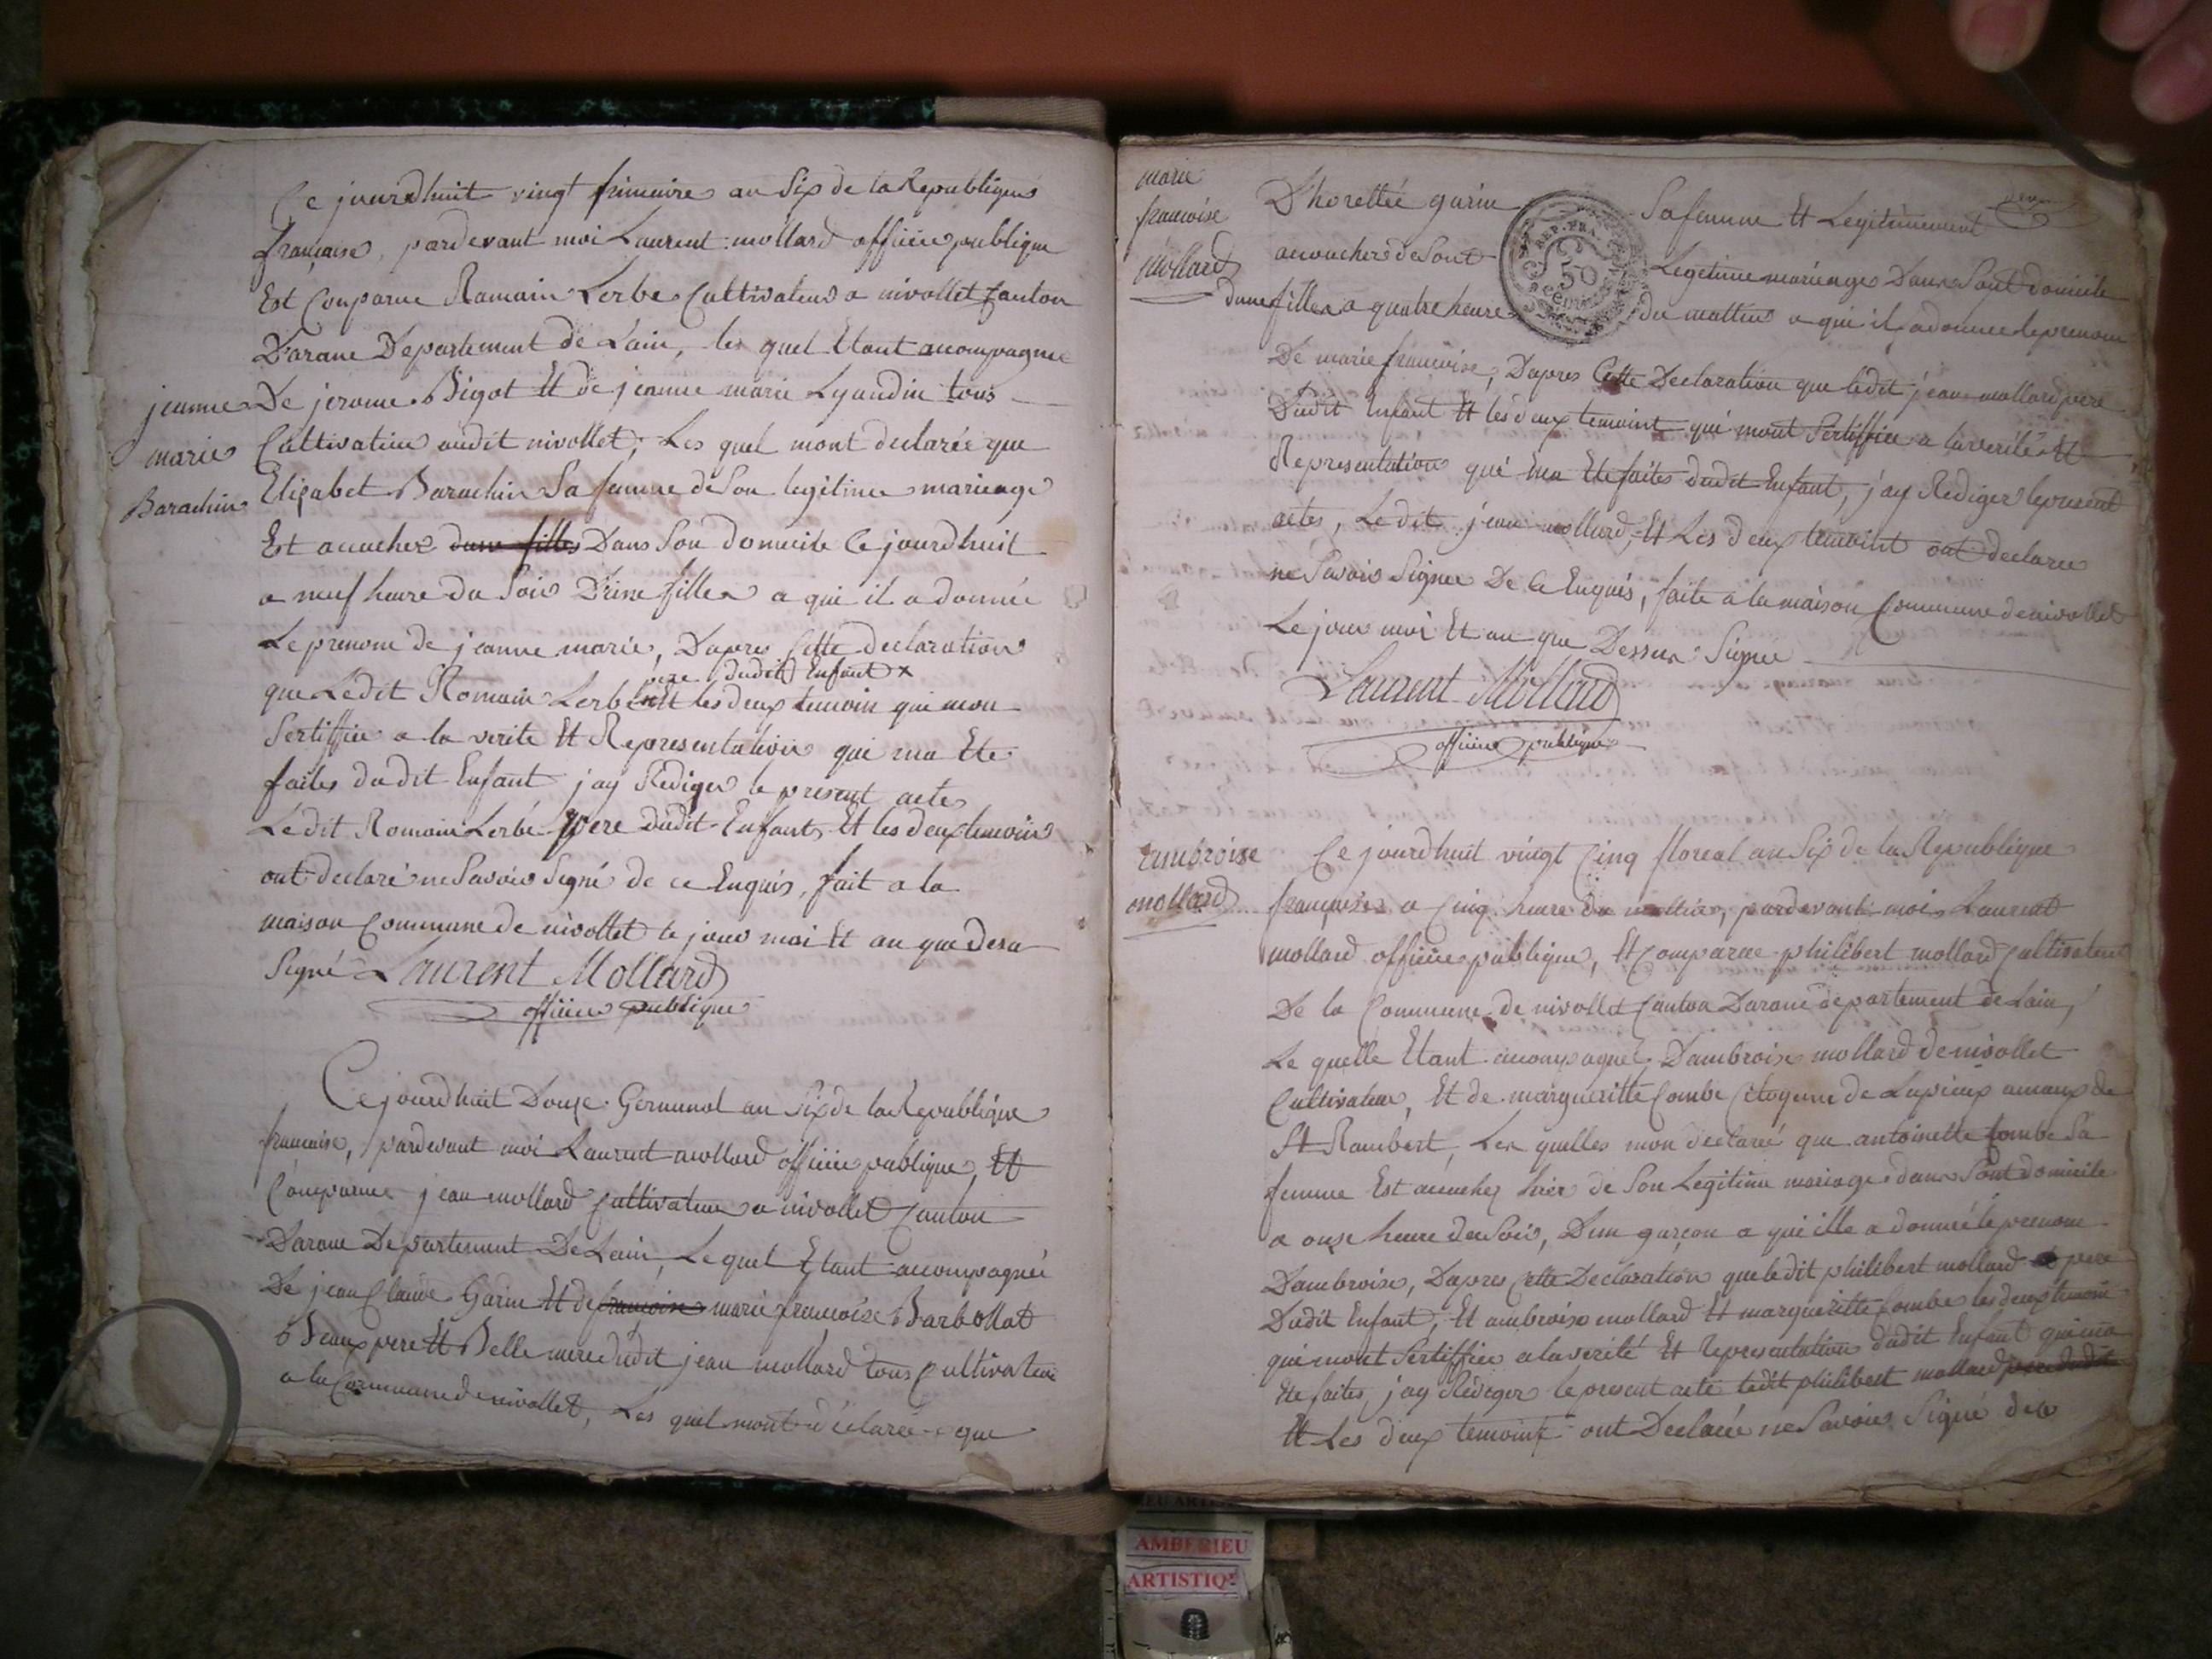 Ce jourdhuit vingt frimaire an Six de la Republique
francaise, pardevant moi Laurent mollard officier publique
Est Comparue Romain Lerbe Cultivateur a nivollet Canton
Darane Departement de Lain, les quel Etant acompagnee
De jerome Bigot Et de jeanne marie Lyaudin tous
jeanne
marie
Barachin
Cultivateur audit nivollet, Les quel mont declarée que
Elizabet Barachin Sa femme de Son legitime mariage
Est acucher dune filles Dans Son domicile Ce jourdhuit
a neuf heure du Soir D'une filles a qui il a donnée
Le prenom de jeanne marie, Dapres Cette declaration
pere dudit Enfant x
que Ledit Romain Lerbe Et les deux temoin qui mon
Sertiffiee a la verite Et Representation qui ma Ete
faites dudit Enfant jay Rediger le present actes
Ledit Romain Lerbé pere dudit Enfant, Et les deux temoins
ont declaré ne Savoir Signé de ce Enquis, fait a la
maison Commune de nivollet le jour moi Et an que desu
Signé Laurent Mollard
officier publique
Ce jourdhuit Douze Germinal an Six de la Republique
francaise, pardevant moi Laurent mollard officier publique, Et
Comparue jean mollard Cultivateur a nivollet Canton
Darane Departement De Lain, Le quel Etant acompagnée
De jean Claude Garin Et de francoise marie francoise Barbollat
Beaux pere Et Belle mere dudit jean mollard tous Cultivateur
a la Commune de nivollet, Les quel mont déclarée que
marie
francoise
Mollard
D'horettée garin Safemme Et Legitimement
acoucher de Sont Legitime mariage Dans Sont domicile
dune filles a quatre heure du mattin a qui il a donnee le prenom
REP. FRA.
50
De marie francoise, Dapres Cette Declaration que ledit jean mollard pere
Dudit Enfant Et les deux temoint qui mont Sertiffiee a la verité Et
Representation qui ma Ete faites dudit Enfant, jay Rediger le present
actes, Le dit jean mollard, Et Les deux temoint ont declaree
ne Savoir Signee De Ce Enquis, faite a la maison Commune de nivollet
Le jour moi Et an que Dessus Signée
Laurent Mollard
officier publique
ambroise
mollard
Ce jourdhuit vingt Cinq floreal an Six de la Republique
francaises a Cinq heure du mattin, pardevant moi Laurent
mollard officier publique, Et Comparue philibert mollard Cultivateur
De la Commune de nivollet Canton Darane departement de Lain,
Le quelle Etant acompagnéz Dambroise mollard de nivollet
Cultivateur, Et de margueritte Combe Citoyenne de Lupieux amaux de
St Rambert, Les quelles mon déclarée que antoinette Combe Sa
femme Est acucher hier de Son Legitime mariage dans Sont domicile
a onze heure du Soir, Dun garçon a qui ille a donnée le prenom
Dambroise, Dapres Cette Declaration que ledit philibert mollard pere
Dudit Enfant, Et ambroise mollard Et margueritte Combe les deux temoin
qui mont Sertiffiee a la verité Et Representation dudit Enfant qui ma
Ete faites, jay Rediger le present acte ledit philibert mollard pere dudit
Et Les deux temoint ont Declarée ne Savoir Signé de ce
AMBERIEU
ARTISTIQUE